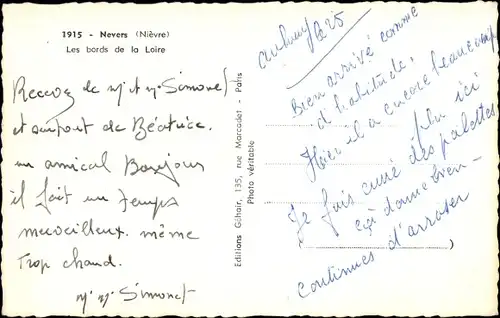 1915 - Nevers (Nièvre)
Les bords de la Loire
Recevez de Mr et Me Simonet
et surtout de Béatrice.
un amical Bonjour
il fait un temps
merveilleux. même
trop chaud.
Simonet
Editions Gilhair, 135, rue Marcadet - Paris
Photo véritable
Bien arrivé comme
d'habitude.
Hier il a encore beaucoup
plu ici
Je fais des palettes
ça donne bien -
continues d'arroser